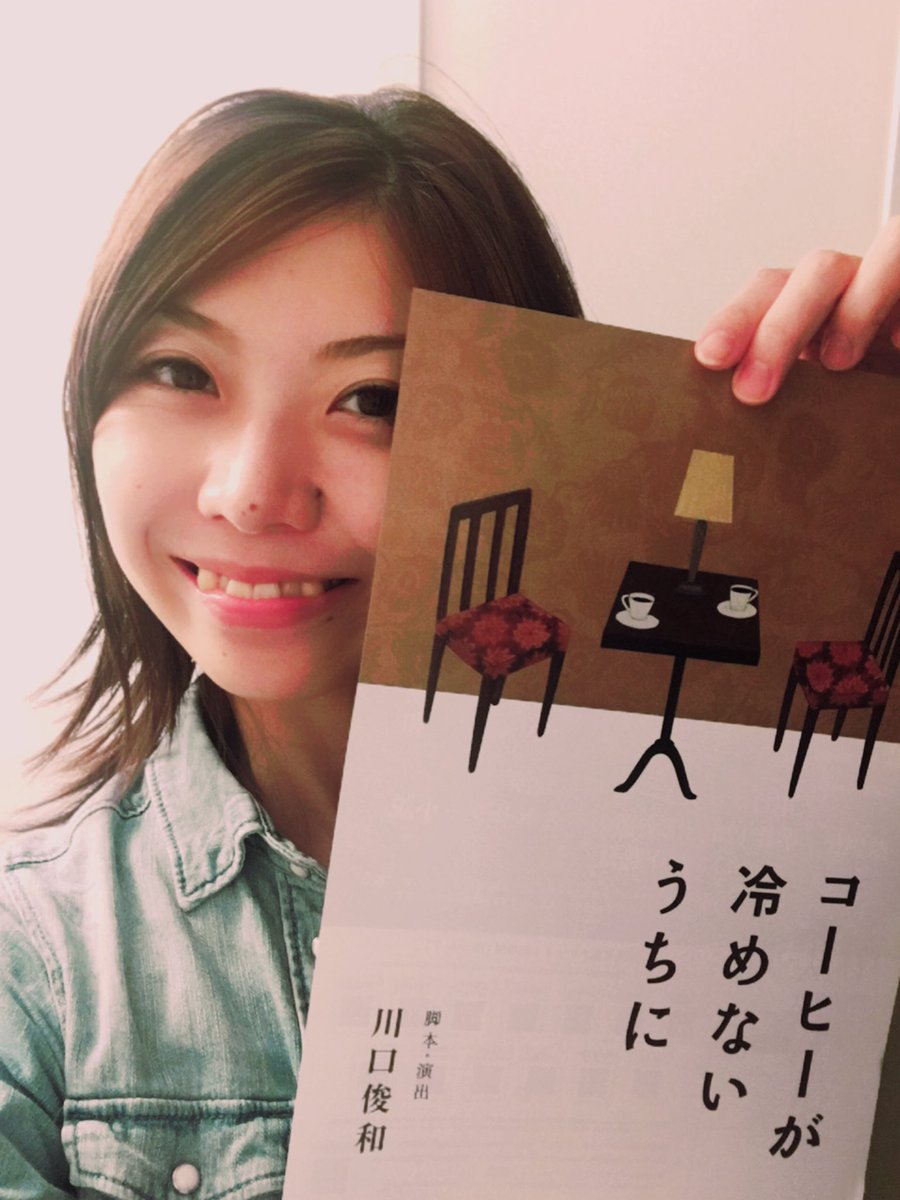 コーヒーが
冷めない
うちに
脚本・演出
川口俊和